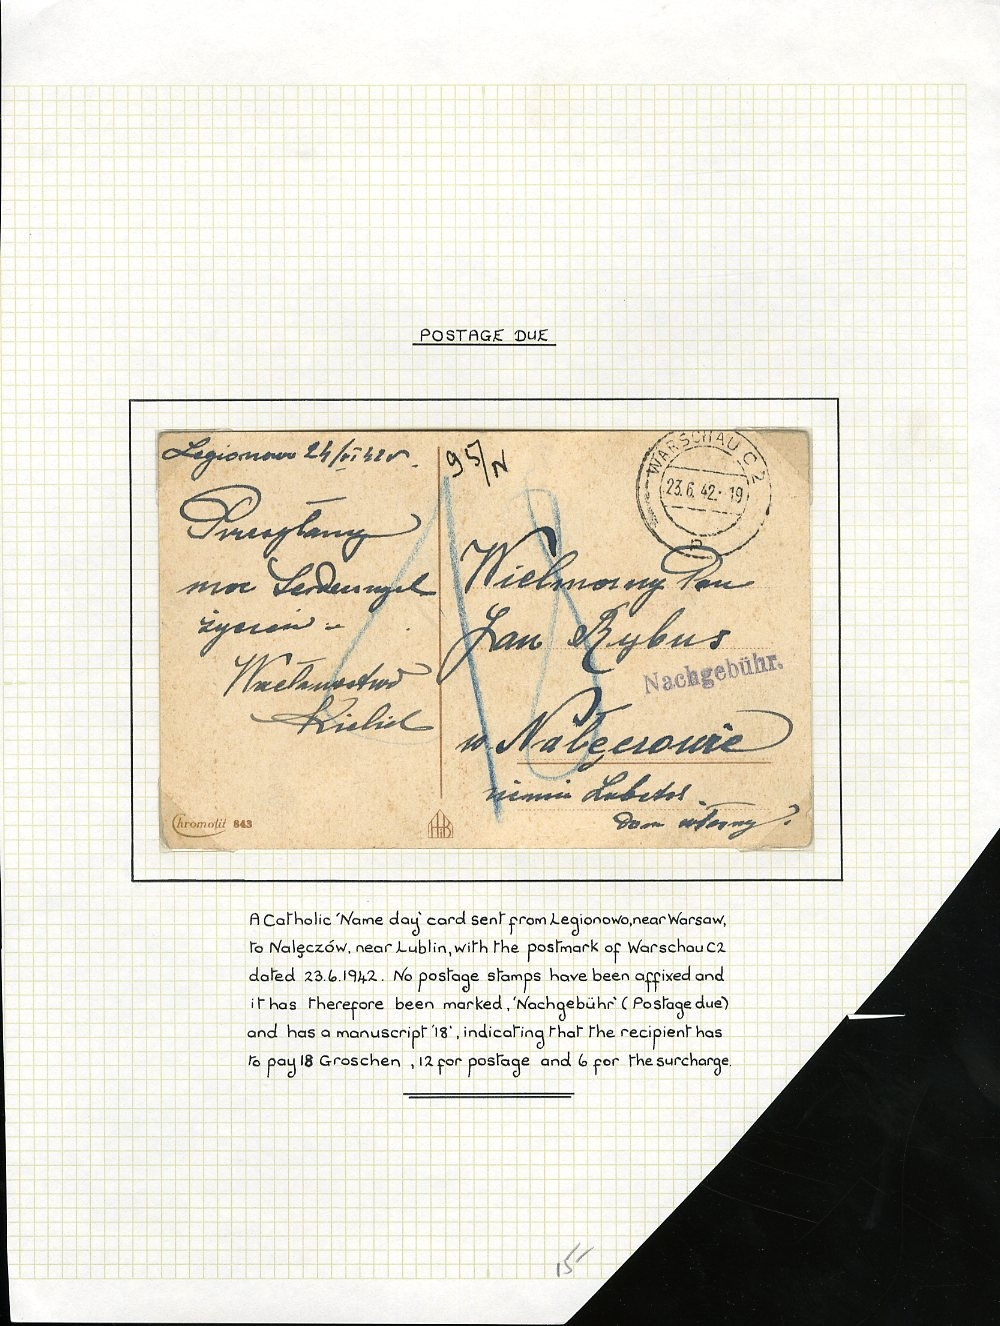 POSTAGE DUE
Legionowo 24/VI 42 r.
95/N
WARSCHAU C 2
23.6.42.-19
Przesyłamy
moc Serdecznych
życzeń -
Wacławostwo
Wielmożny Pan
Jan Rybus
Nachgebühr.
w Nałęczowie
ziemia Lubels.
dom własny.
Chromotit 843
A Catholic 'Name day' card sent from Legionowo, near Warsaw,
to Nalęczów, near Lublin, with the postmark of Warschau C2
dated 23.6.1942. No postage stamps have been affixed and
it has therefore been marked, 'Nachgebühr' (Postage due)
and has a manuscript '18', indicating that the recipient has
to pay 18 Groschen , 12 for postage and 6 for the surcharge.
15-